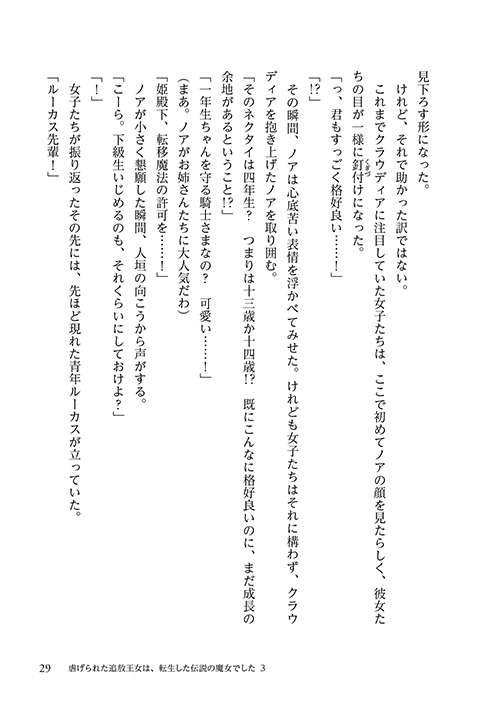 見下ろす形になった。
　けれど、それで助かった訳ではない。
　これまでクラウディアに注目していた女子たちは、ここで初めてノアの顔を見たらしく、彼女た
ちの目が一様に釘付けになった。
くぎづ
「っ、君もすっごく格好良い……！」
「!?」
　その瞬間、ノアは心底苦い表情を浮かべてみせた。けれども女子たちはそれに構わず、クラウ
ディアを抱き上げたノアを取り囲む。
「そのネクタイは四年生？　つまりは十三歳か十四歳!?　既にこんなに格好良いのに、まだ成長の
余地があるということ!?」
「一年生ちゃんを守る騎士さまなの？　可愛い……！」
（まあ。ノアがお姉さんたちに大人気だわ）
「姫殿下、転移魔法の許可を……！」
　ノアが小さく懇願した瞬間、人垣の向こうから声がする。
「こーら。下級生いじめるのも、それくらいにしておけよ？」
「！」
　女子たちが振り返ったその先には、先ほど現れた青年ルーカスが立っていた。
「ルーカス先輩！」
29　虐げられた追放王女は、転生した伝説の魔女でした 3